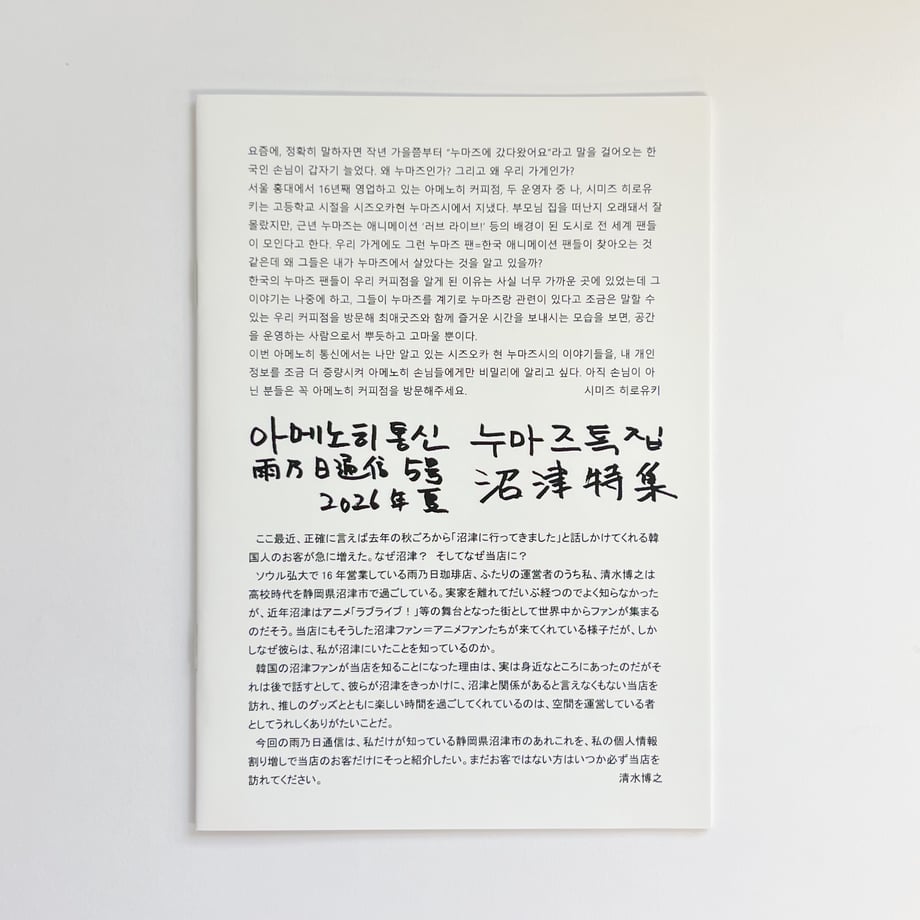 요즘에, 정확히 말하자면 작년 가을쯤부터 “누마즈에 갔다왔어요”라고 말을 걸어오는 한
국인 손님이 갑자기 늘었다. 왜 누마즈인가? 그리고 왜 우리 가게인가?
서울 홍대에서 16년째 영업하고 있는 아메노히 커피점, 두 운영자 중 나, 시미즈 히로유
키는 고등학교 시절을 시즈오카현 누마즈시에서 지냈다. 부모님 집을 떠난지 오래돼서 잘
몰랐지만, 근년 누마즈는 애니메이션 ‘러브 라이브!’ 등의 배경이 된 도시로 전 세계 팬들
이 모인다고 한다. 우리 가게에도 그런 누마즈 팬=한국 애니메이션 팬들이 찾아오는 것
같은데 왜 그들은 내가 누마즈에서 살았다는 것을 알고 있을까?
한국의 누마즈 팬들이 우리 커피점을 알게 된 이유는 사실 너무 가까운 곳에 있었는데 그
이야기는 나중에 하고, 그들이 누마즈를 계기로 누마즈랑 관련이 있다고 조금은 말할 수
있는 우리 커피점을 방문해 최애굿즈와 함께 즐거운 시간을 보내시는 모습을 보면, 공간
을 운영하는 사람으로서 뿌듯하고 고마울 뿐이다.
이번 아메노히 통신에서는 나만 알고 있는 시즈오카 현 누마즈시의 이야기들을, 내 개인
정보를 조금 더 증량시켜 아메노히 손님들에게만 비밀리에 알리고 싶다. 아직 손님이 아
닌 분들은 꼭 아메노히 커피점을 방문해주세요. 시미즈 히로유키
아메노히통신 누마즈특집
雨乃日通信 5号 沼津特集
2026年夏
ここ最近、正確に言えば去年の秋ごろから「沼津に行ってきました」と話しかけてくれる韓
国人のお客が急に増えた。なぜ沼津？ そしてなぜ当店に？
ソウル弘大で 16 年営業している雨乃日珈琲店、ふたりの運営者のうち私、清水博之は
高校時代を静岡県沼津市で過ごしている。実家を離れてだいぶ経つのでよく知らなかった
が、近年沼津はアニメ「ラブライブ！」等の舞台となった街として世界中からファンが集まる
のだそう。当店にもそうした沼津ファン＝アニメファンたちが来てくれている様子だが、しか
しなぜ彼らは、私が沼津にいたことを知っているのか。
韓国の沼津ファンが当店を知ることになった理由は、実は身近なところにあったのだがそ
れは後で話すとして、彼らが沼津をきっかけに、沼津と関係があると言えなくもない当店を
訪れ、推しのグッズとともに楽しい時間を過ごしてくれているのは、空間を運営している者
としてうれしくありがたいことだ。
今回の雨乃日通信は、私だけが知っている静岡県沼津市のあれこれを、私の個人情報
割り増しで当店のお客だけにそっと紹介したい。まだお客ではない方はいつか必ず当店を
訪れてください。 清水博之